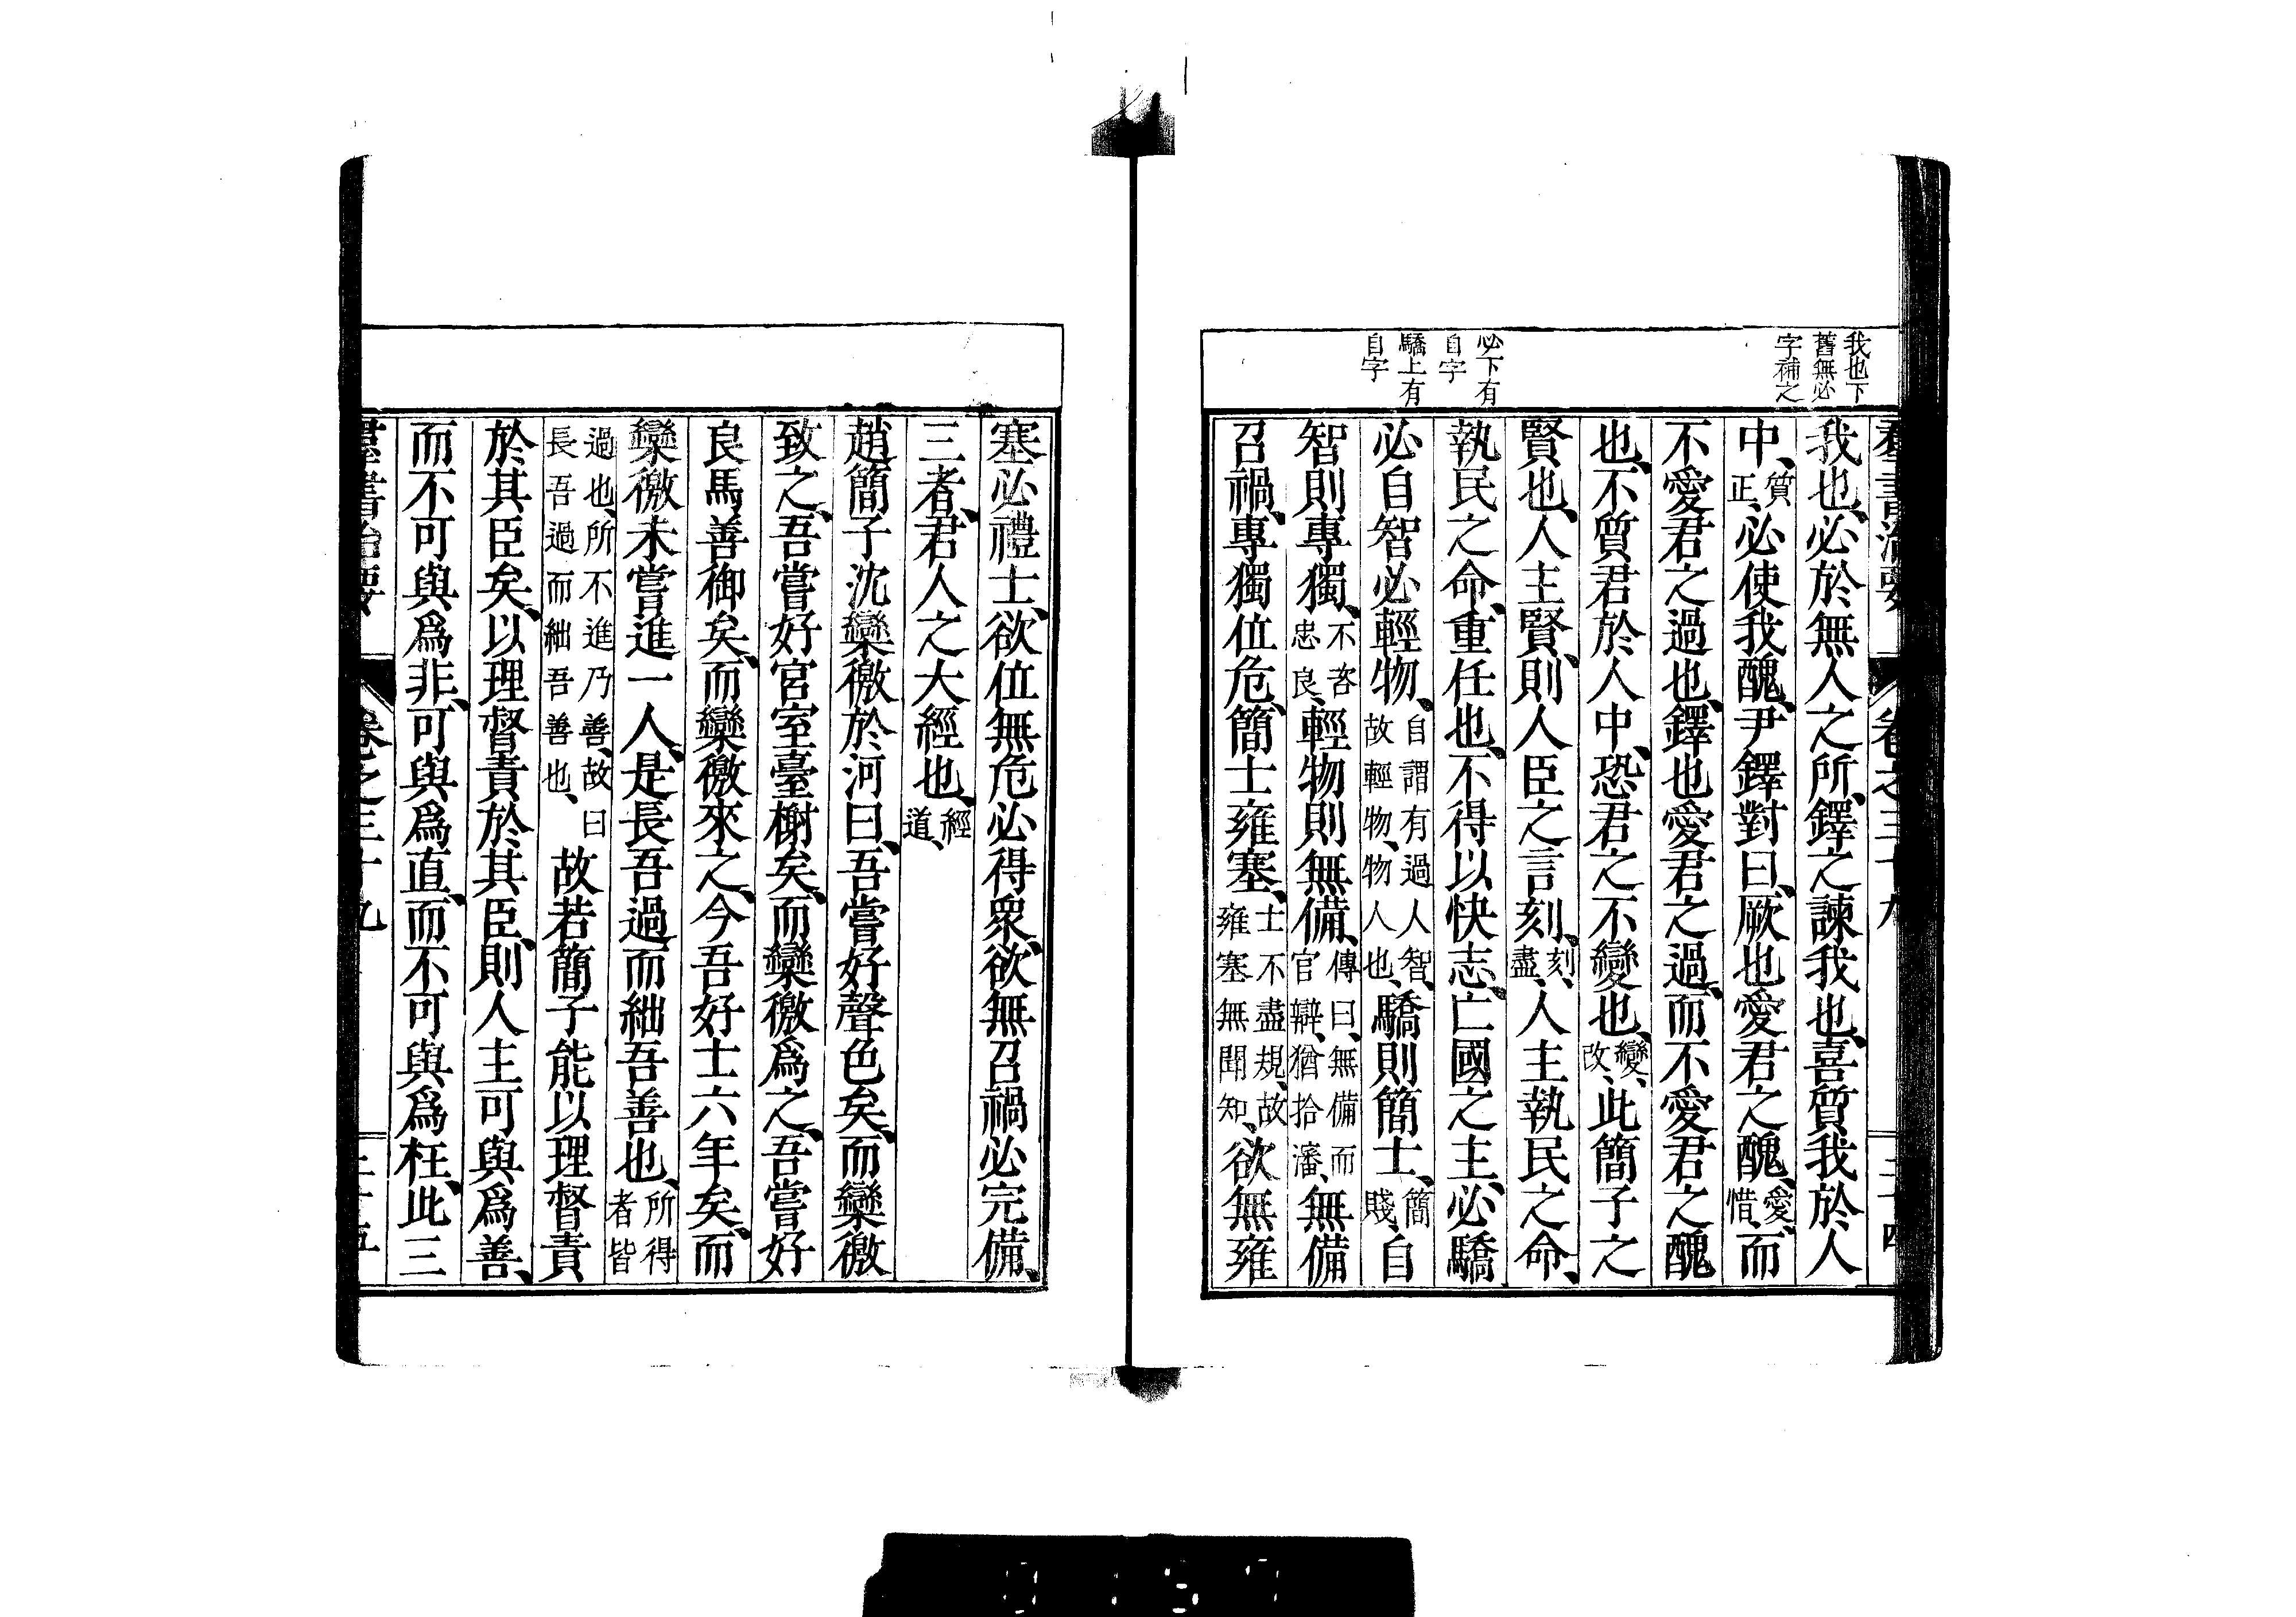 我也下
舊無必
字補之
必下有
自字
驕上有
自字
群書治要 卷之三十九 三十四
我也、必於無人之所、鐸之諫我也、喜質我於人
中、質正、必使我醜、尹鐸對曰、厥也愛君之醜、愛惜、而
不愛君之過也、鐸也愛君之過、而不愛君之醜
也、不質君於人中、恐君之不變也、變改、此簡子之
賢也、人主賢、則人臣之言刻、刻盡、人主執民之命、
執民之命、重任也、不得以快志、亡國之主、必驕
必自智必輕物、自謂有過人智、故輕物、物人也、驕則簡士、簡賤、自
智則專獨、不咨忠良、輕物則無備、傳曰、無備而官辦、猶拾瀋、無備
召禍、專獨位危、簡士雍塞、士不盡規、故雍塞無聞知、欲無雍
塞必禮士、欲位無危必得衆、欲無召禍必完備、
三者、君人之大經也、經道、
趙簡子沈欒徼於河曰、吾嘗好聲色矣、而欒徼
致之、吾嘗好宮室臺榭矣、而欒徼爲之、吾嘗好
良馬善御矣、而欒徼來之、今吾好士六年矣、而
欒徼未嘗進一人、是長吾過而絀吾善也、所得者皆
過也、所不進乃善、故曰長吾過而絀吾善也、故若簡子能以理督責
於其臣矣、以理督責於其臣、則人主可與爲善、
而不可與爲非、可與爲直、而不可與爲枉、此三
群書治要 卷之三十九 三十五